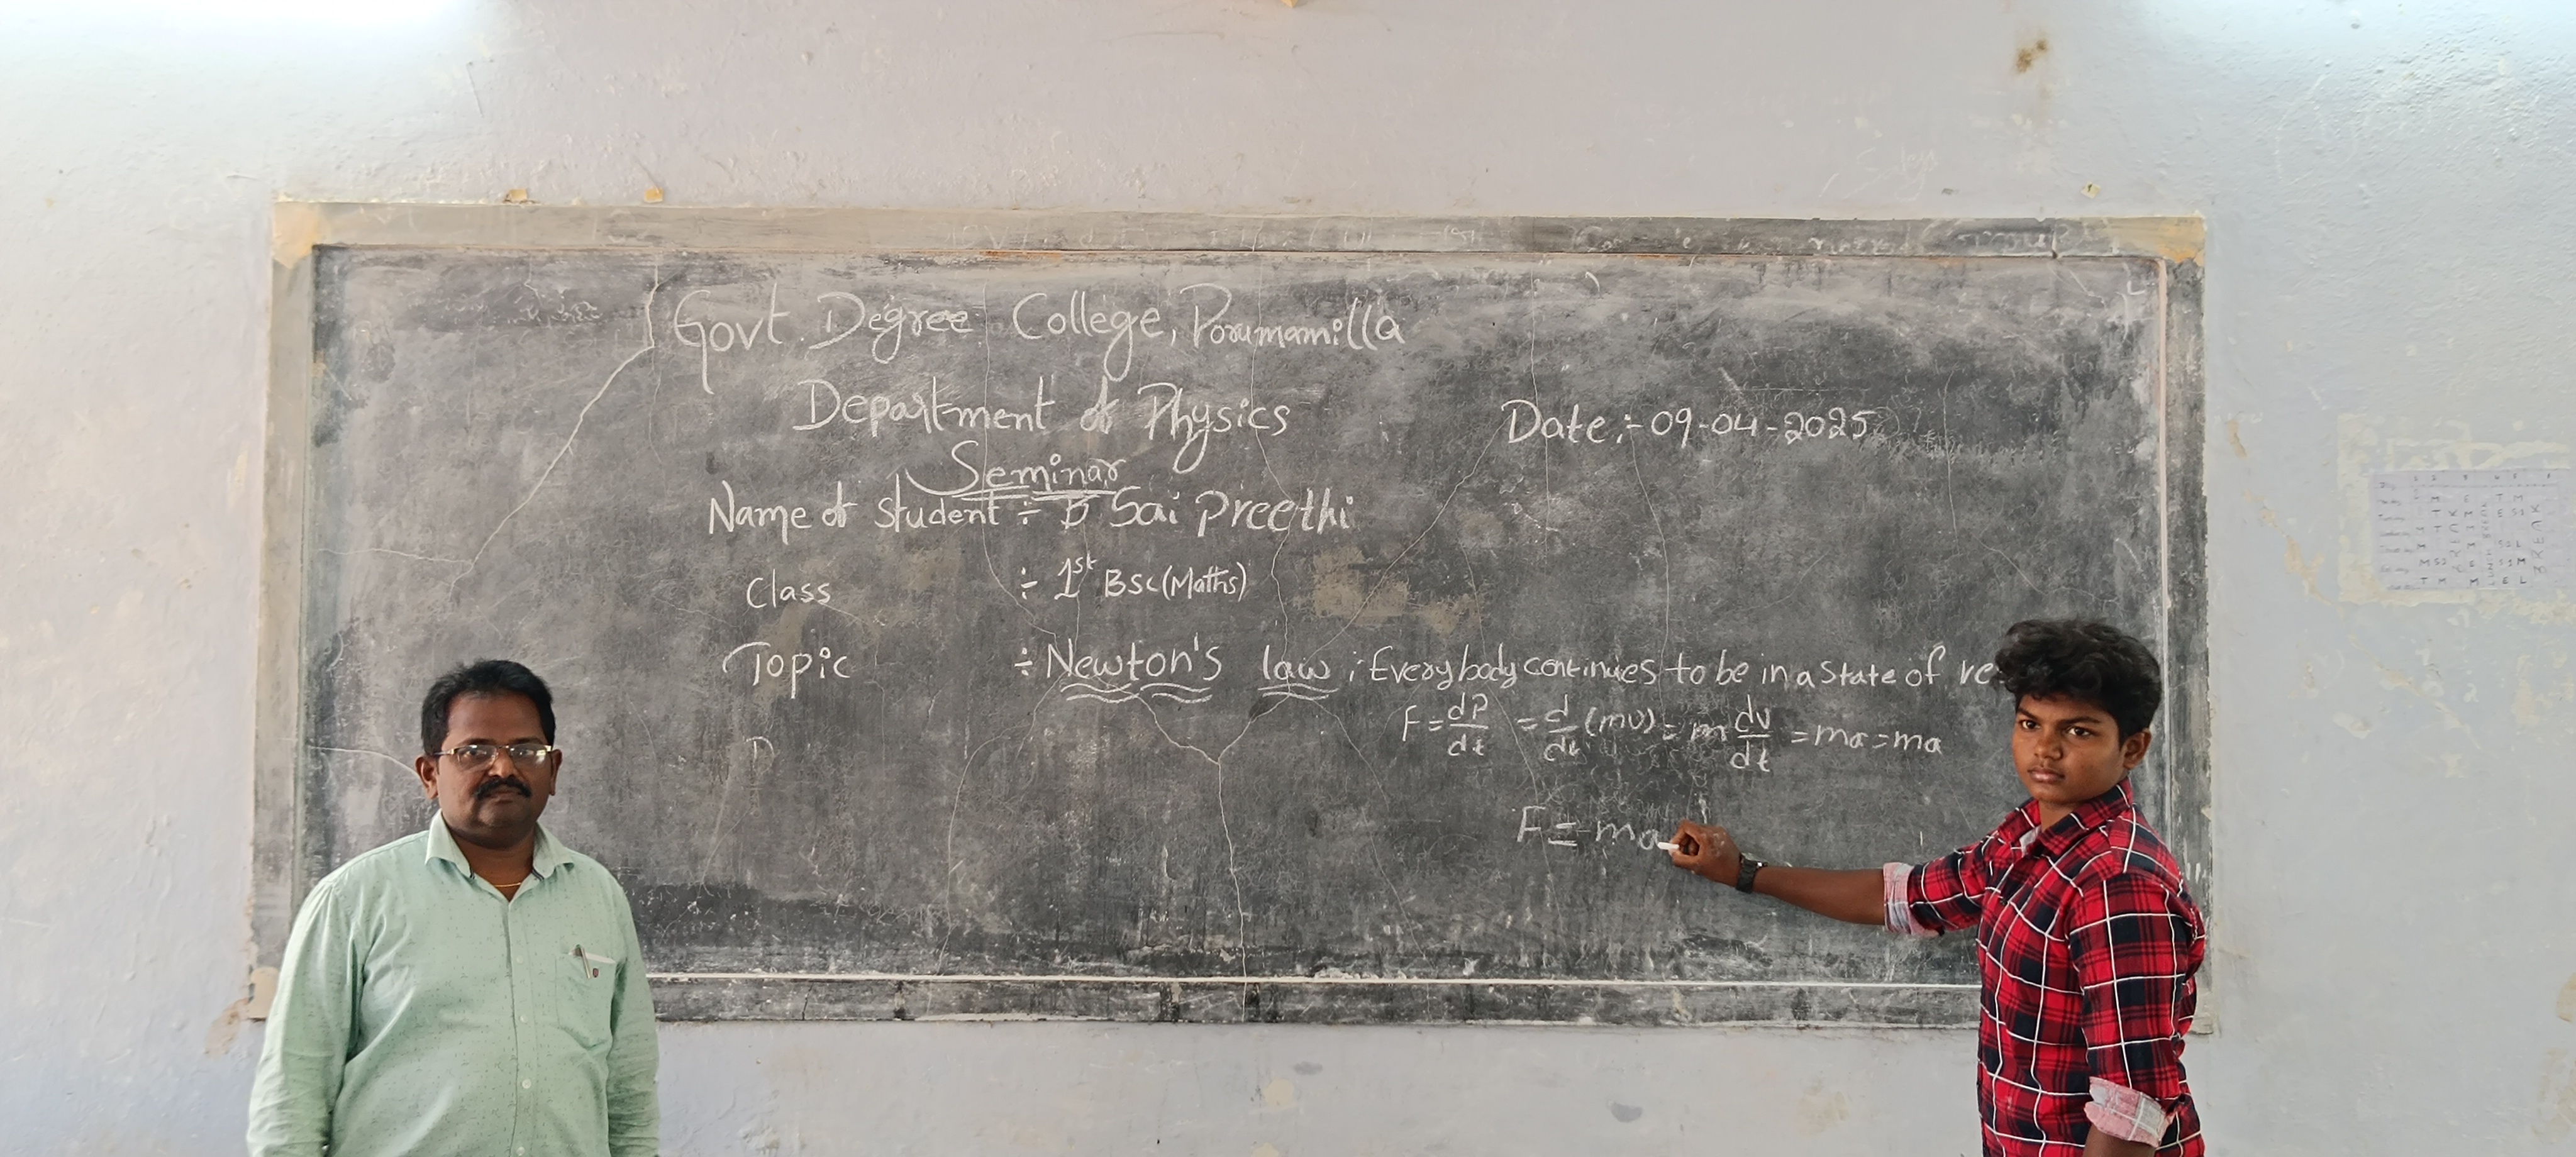 Govt. Degree College, Porumamilla
Department of Physics
Date:- 09-04-2025
Seminar
Name of student ÷ B Sai preethi
Class ÷ 1st BSc (Maths)
Topic ÷ Newton's law ; Every body continues to be in a state of re
F = dP/dt = d/dt (mv) = m dv/dt = ma = ma
F = ma